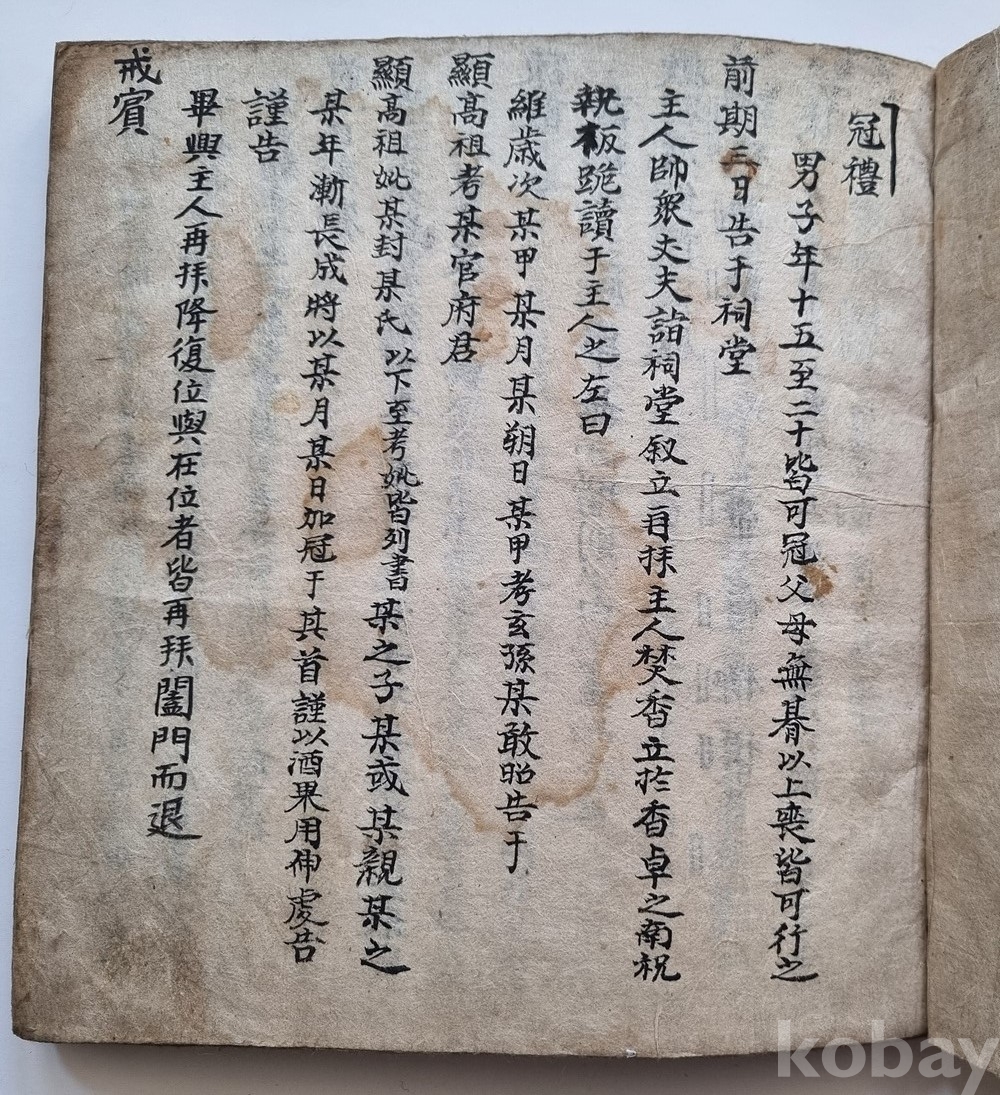 冠禮
男子年十五至二十皆可冠父母無朞以上喪皆可行之
前期三日告于祠堂
主人帥衆丈夫詣祠堂叙立再拜主人焚香立於香卓之南祝
執板跪讀于主人之左曰
維歲次某甲某月某朔日某甲孝玄孫某敢昭告于
顯高祖考某官府君
顯高祖妣某封某氏以下至考妣皆列書某之子某或某親某之
某年漸長成將以某月某日加冠于其首謹以酒果用伸虔告
謹告
畢興主人再拜降復位與在位者皆再拜闔門而退
戒賓
kobay